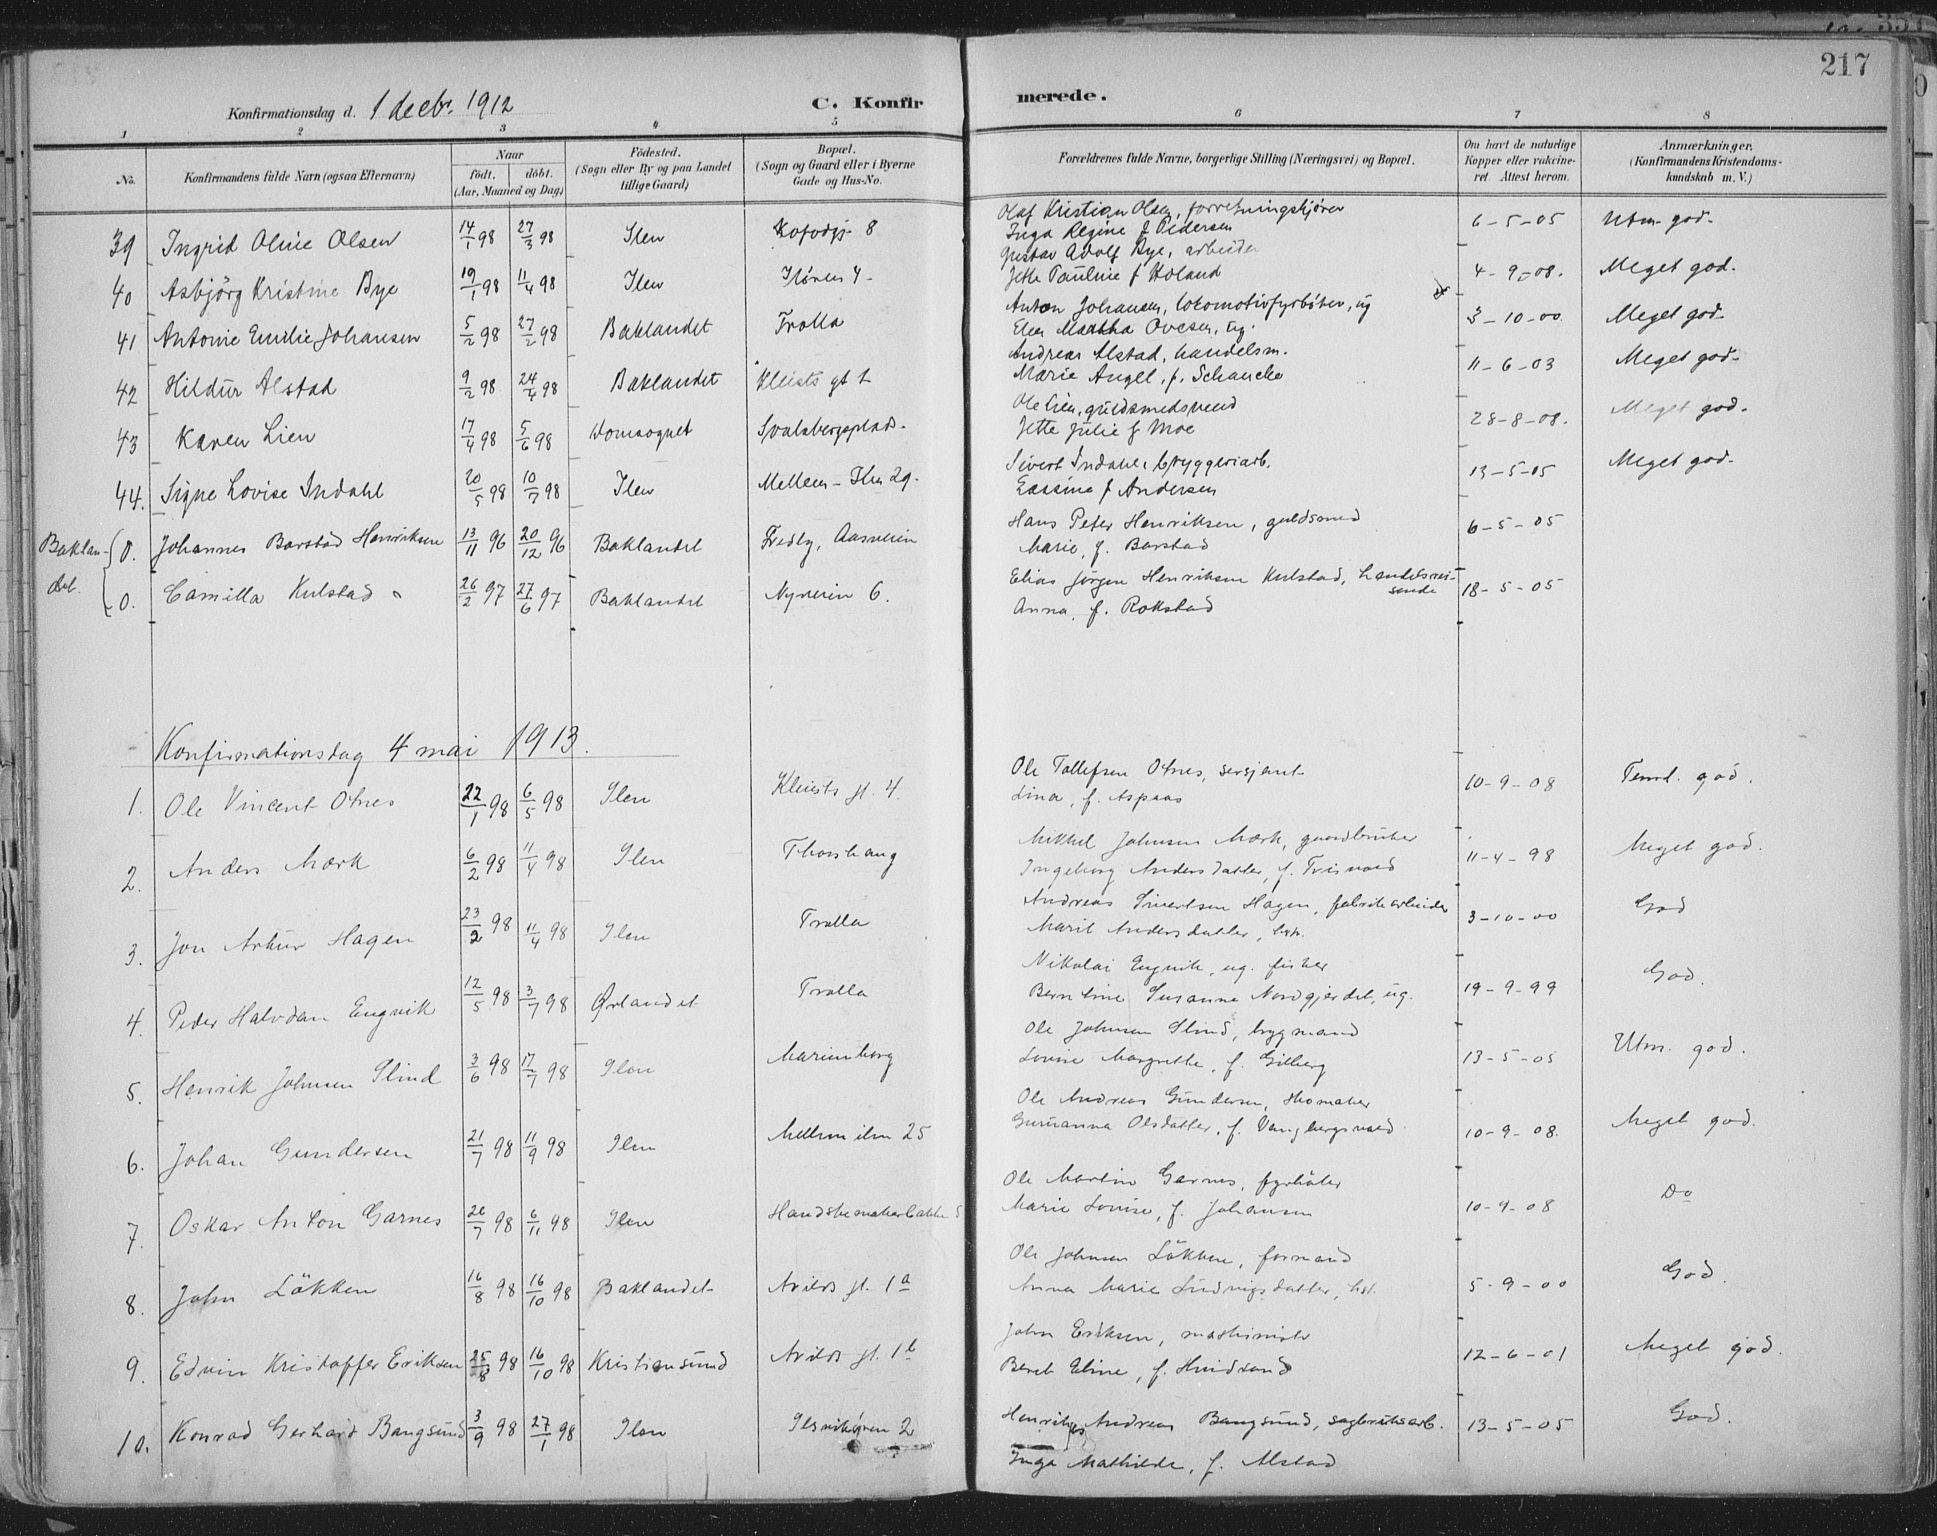 217
Konfirmationsdag d. 1 decbr. 1912
C. Konfirmerede.
1 2 3 4 5 6 7 8
No. Konfirmandens fulde Navn (ogsaa Efternavn) Naar født. døbt. (Aar, Maaned og Dag) Fødested. (Sogn eller By og paa Landet tillige Gaard) Bopæl. (Sogn og Gaard eller i Byerne Gade og Hus-No. Forældrenes fulde Navne, borgerlige Stilling (Næringsvei) og Bopæl. Om havt de naturlige Kopper eller vakcineret. Attest herom. Anmærkninger. (Konfirmandens Kristendomskundskab m. V.)
39 Ingrid Oline Olsen 14/1 98 27/3 98 Ilen 8 Olaf Kristian Olsen, forretningskjører
Inga Regine f Pedersen 6-5-05 Utm. god.
40 Asbjörg Kristine Bye 19/1 98 11/4 98 Ilen Ilören 4 Gustav Adolf Bye, arbeider
Jette Pauline f Holand 4-9-08. Meget god.
41 Antonie Emilie Johansen 5/2 98 27/2 98 Baklandet Trolla Anton Johansen, lokomotivfyrbøter, ug
Elen Martha Ovesen, ug. 3-10-00. Meget god.
42 Hildur Alstad 9/2 98. 24/4 98 Baklandet Kleists gt 1 Andreas Alstad, handelsm.
Marie Angel, f. Schancke 11-6-03 Meget god.
43 Karen Lien 17/4 98 5/6 98 Domsognet Svalsbergsplads. Ole Lien, guldsmedsvend
Jette Julie f Moe 28-8-08. Meget god.
44. Signe Lovise Indahl 20/5 98 10/7 98 Ilen Mellem-Ilen 29. Sivert Indahl, bryggeriarb.
f Andersen 13-5-05 Meget god.
Baklandet. 0. Johannes Barstad Henriksen 13/11 96 20/12 96 Baklandet Fredly, Aasveien Hans Peter Henriksen, guldsmed
Marie, f. Barstad 6-5-05
0. Camilla Kulstad 26/2 97 27/6 97 Baklandet Nyveien 6. Elias Jörgen Henriksen Kulstad, handelsreisende
Anna, f. Rokstad 18-5-05
Konfirmationsdag 4 mai 1913.
1. Ole Vincent Otnes 22/1 98 6/5 98 Ilen Kleists gt. 4 Ole Tollefsen Otnes, sersjant
Lina, f. Aspaas 10-9-08 Temd. god.
2. Anders Mærk 6/2 98 11/4 98 Ilen Thorshaug Mikkel Johnsen Mærk, gaardbruker
Ingeborg Andersdatter, f. 11-4-98 Meget god.
3. Jon Artur Hagen 23/2 98 11/4 98 Ilen Trolla Andreas Sivertsen Hagen, fabrikarbeider
Marit Andersdatter, hstr. 3-10-00 God
4. Peder Halvdan Engvik 12/5 98 3/7 98 Ørlandet Trolla Nikolai Engvik, ug. fisker
Berntine Susanna Nordgjerdet, ug. 19-9-99 God.
5. Henrik Johnsen Slind 3/6 98 17/7 98 Ilen Marienborg Ole Johnsen Slind, bygmand
Lovise Margrethe, f. Gilberg 13-5-05 Utm. god.
6. Johan Gundersen 21/7 98 11/9 98 Ilen Mellemilen 25 Ole Andreas Gundersen, skomaker
Gurianna Olsdatter, f. 10-9-08. Meget god.
7. Oskar Anton Garnes 26/7 98 6/11 98 Ilen Handskemakerbakken 5 Ole Martin Garnes, fyrbøter
Marie Lovise, f. Johansen 10-9-08 Do
8. John Lökken 16/8 98 16/10 98 Baklandet Arilds gt. 1a Ole Johnsen Lökken, formand
Anna Marie Ludvigsdatter, hst. 5-9-00 God.
9. Edvin Kristoffer Eriksen 25/8 98 16/10 98 Kristiansund Arilds gt. 1b John Eriksen, maskinist
Beret Eline, f. Hindrand 12-6-01 Meget god.
10. Konrad Gerhard Bangsund 3/9 98 27/1 98 Ilen Ilsvikøren 2 Henrik Andreas Bangsund, sagbruksarb.
Inga Mathilde, f. Alstad 13-5-05 God.